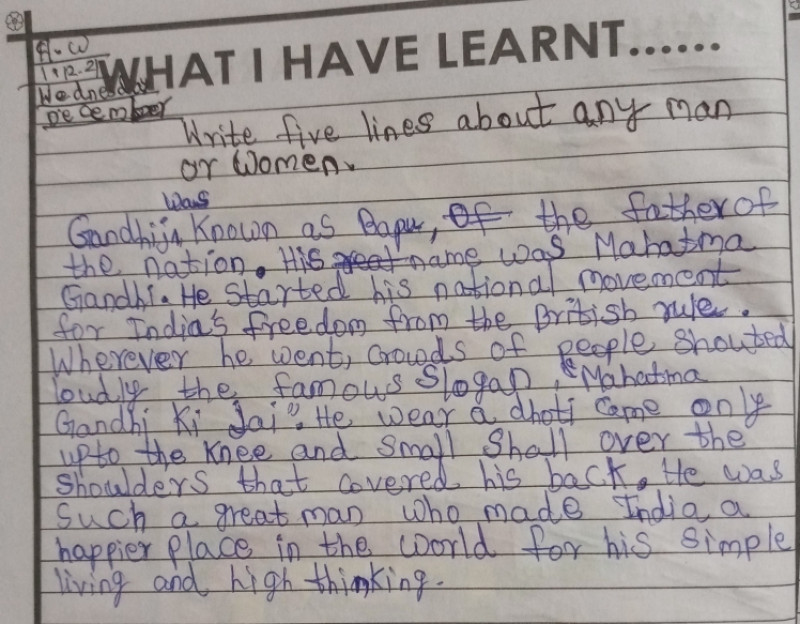 H.W
1.12.2
Wednesday
December
WHAT I HAVE LEARNT......
Write five lines about any man
or Women.
was
Gandhiji Known as Bapu, of the father of
the nation. His real name was Mahatma
Gandhi. He Started his national movement
for India's freedom from the British rule.
Wherever he went, Crowds of people Shouted
loudly the famous Slogan, "Mahatma
Gandhi Ki Jai". He wear a dhoti Came only
upto the Knee and Small Shall over the
Shoulders that Covered his back. He was
Such a great man who made India a
happier Place in the World for his Simple
living and high thinking.